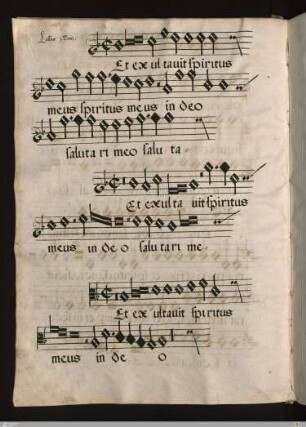 Et ex ul tavit spiritus
meus spiritus meus in deo
saluta ri meo salu ta
Et exulta vit spiritus
meus in de o salutari me
Et ex ultavit spiritus
meus in de o